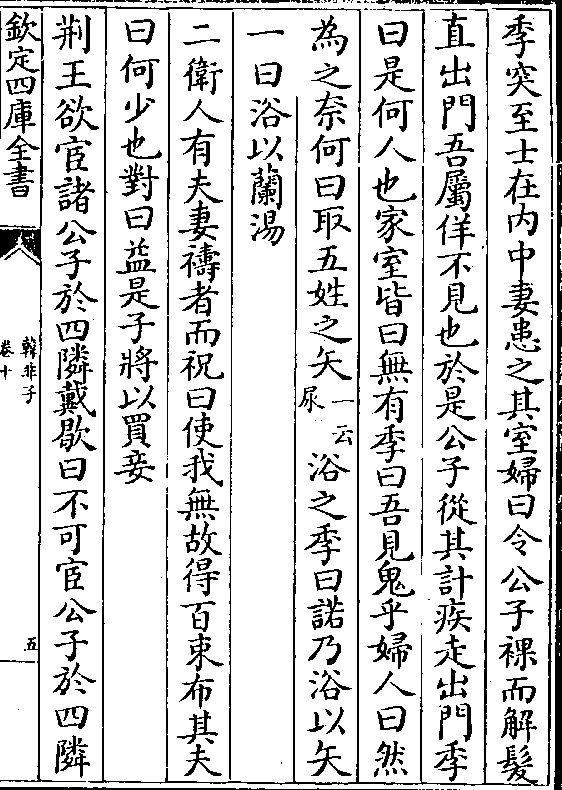 季突至士在内中妻患之其室婦曰令公子裸而解髮
直出門吾屬佯不見也於是公子從其計疾走出門季
曰是何人也家室皆曰無有季曰吾見鬼乎婦人曰然
為之奈何曰取五姓之矢一云尿浴之季曰諾乃浴以矢
一曰浴以蘭湯
二衛人有夫妻禱者而祝曰使我無故得百束布其夫
曰何少也對曰益是子將以買妾
荆王欲宦諸公子於四隣戴歇曰不可宦公子於四隣
欽定四庫全書
韓非子
卷十
五